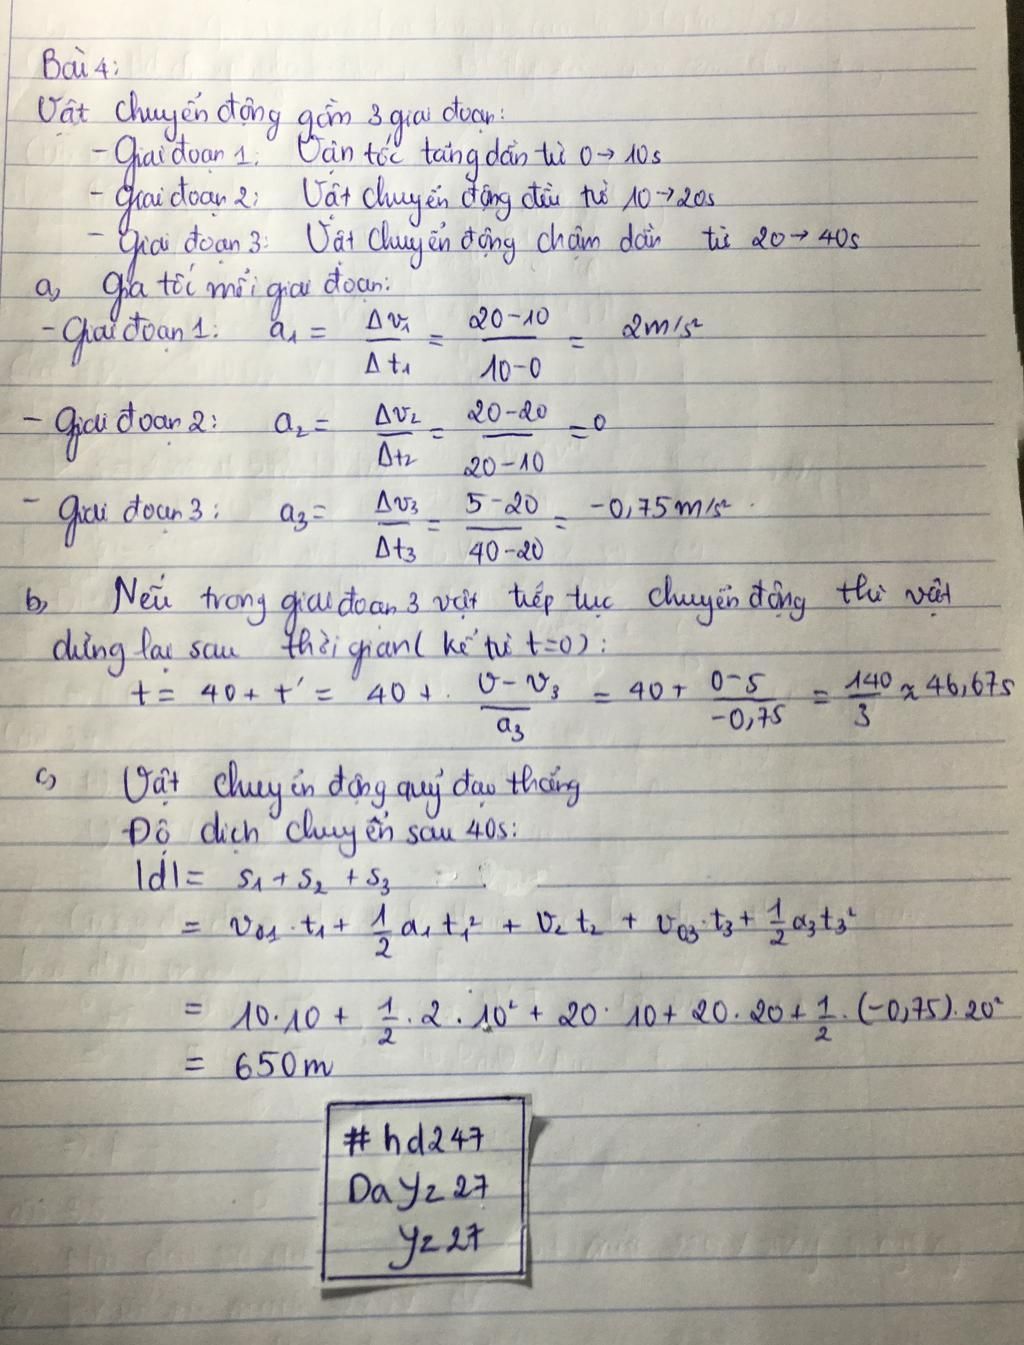 Bài 4:
Vật chuyển động gồm 3 giai đoạn:
- Giai đoạn 1: Vận tốc tăng dần từ 0→10s
- Giai đoạn 2: Vật chuyển động đều từ 10→20s
- Giai đoạn 3: Vật chuyển động chậm dần từ 20→40s
a, Gia tốc mỗi giai đoạn:
- Giai đoạn 1: a₁ = Δv₁/Δt₁ = (20-10)/(10-0) = 2m/s²
- Giai đoạn 2: a₂ = Δv₂/Δt₂ = (20-20)/(20-10) = 0
- Giai đoạn 3: a₃ = Δv₃/Δt₃ = (5-20)/(40-20) = -0,75m/s²
b, Nếu trong giai đoạn 3 vật tiếp tục chuyển động thì vật
dừng lại sau thời gian (kể từ t=0):
t = 40 + t' = 40 + (v-v₃)/a₃ = 40 + (0-5)/(-0,75) = 140/3 ≈ 46,67s
c, Vật chuyển động quỹ đạo thẳng
Độ dịch chuyển sau 40s:
|d| = s₁ + s₂ + s₃
= v₀₁.t₁ + 1/2 a₁t₁² + v₂t₂ + v₀₃.t₃ + 1/2 a₃t₃²
= 10.10 + 1/2.2.10² + 20.10 + 20.20 + 1/2.(-0,75).20²
= 650m
#hd247
DaYz27
Yz27